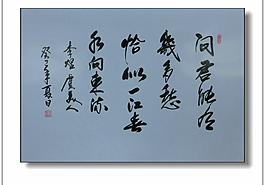 问君能有
几多愁
恰似一江春
水向东流
李煜虞美人
癸之年夏日